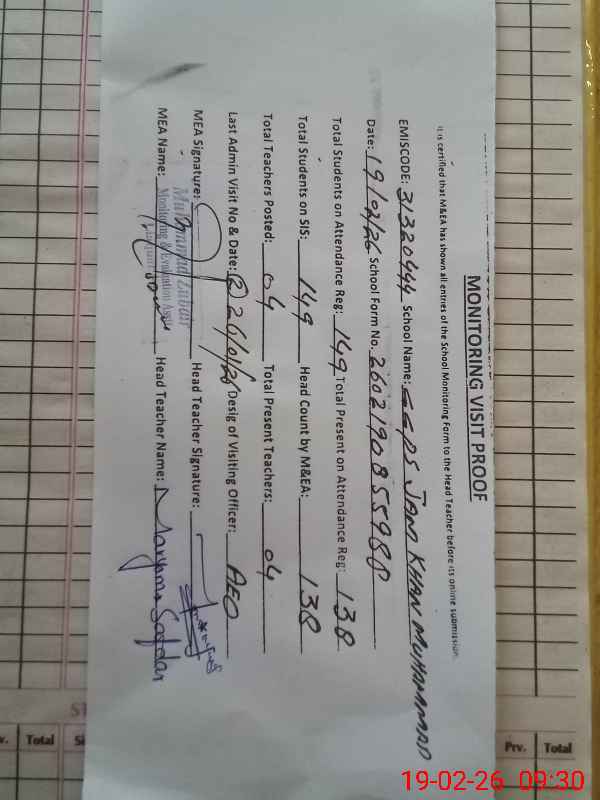 MONITORING VISIT PROOF
It is certified that M&EA has shown all entries of the School Monitoring Form to the Head Teacher before its online submission.
EMISCODE: 31320444 School Name: GGPS JAM KHAN MUHAMMAD
Date: 19/02/26 School Form No. 2602190855980
Total Students on Attendance Reg: 149 Total Present on Attendance Reg: 138
Total Students on SIS: 149 Head Count by M&EA: 138
Total Teachers Posted: 04 Total Present Teachers: 04
Last Admin Visit No & Date: Desig of Visiting Officer: AEO
MEA Signature: Head Teacher Signature:
Muhammad Zubair
Monitoring & Evaluation Asstt
MEA Name: Head Teacher Name: Maryama Safdar
Prv. Total
v. Total
19-02-26 09:30